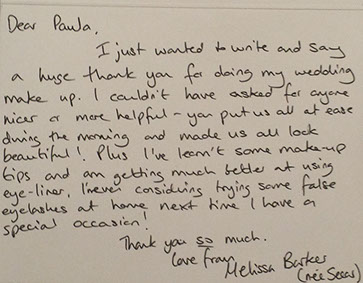 Dear Paula,
I just wanted to write and say
a huge thank you for doing my wedding
make up. I couldn't have asked for anyone
nicer or more helpful - you put us all at ease
during the morning and made us all look
beautiful! Plus I've learn't some make-up
tips and am getting much better at using
eye-liner. I'm even considering trying some false
eyelashes at home next time I have a
special occasion!
Thank you so much.
Love from
Melissa Barker
(née